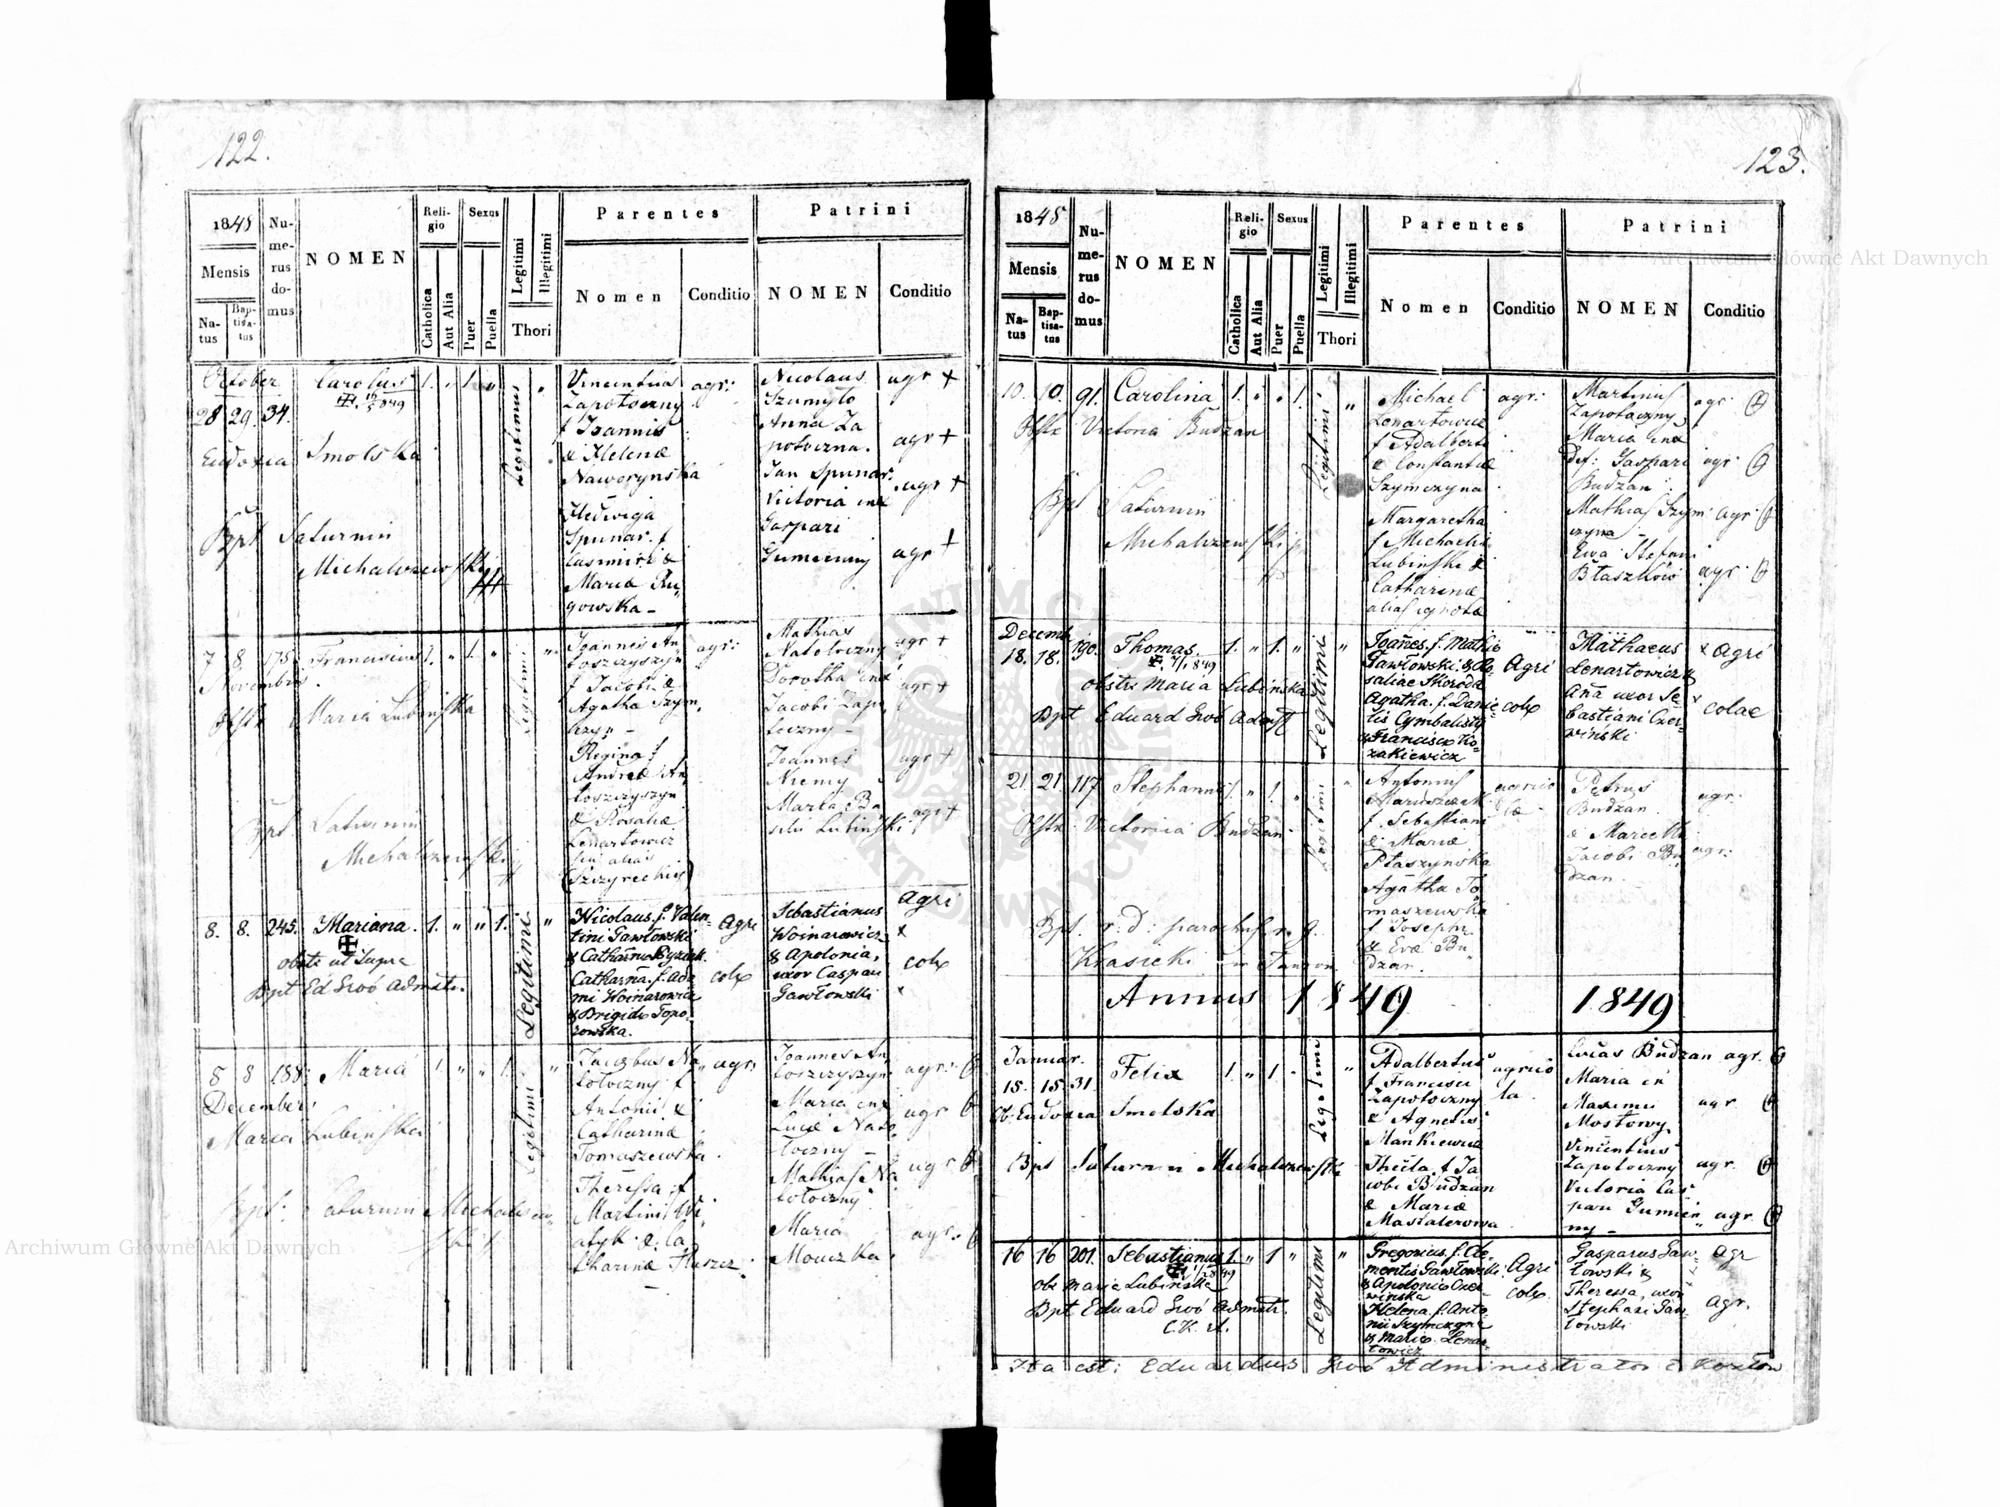 122.
1848
Nu-
me-
rus
do-
mus
NOMEN
Reli-
gio
Sexus
Catholica
Aut Alia
Puer
Puella
Legitimi
Illegitimi
Thori
Parentes
Patrini
Mensis
Na-
tus
Bap-
tisa-
tus
Nomen
Conditio
NOMEN
Conditio
October
28 29. 34.
Carolus 1. 1.
Eudoxia Smolska
Bpt Saturnin
Michalszewski
Legitimus
Vincentius
Zapotoczny
f Joannis
& Helenæ
Naworynska
Hedwiga
Spunar. f
Casimiri &
Mariæ Ru-
gowska -
agr:
Nicolaus
Szumyło
Anna Za
potoczna.
Jan Spunar.
Victoria
Gaspari
Gumieniny
agr +
agr +
agr +
agr +
7 8. 175.
Novembris
Franciscus 1. 1.
Obstx Maria Lubinska
Bpt Saturnin
Michalszewski
Legitimi
Joannes An-
toszczyszyn
f Jacobi &
Agatha Szym
Regina f
Andreæ An
toszczyszyn
& Rosaliæ
Lenartowicz
agr:
Mathias
Natoloczny
Dorotha
Jacobi Zapo
toczny -
Joannes
Niemy
Maria Ba
silii Lubinski
agr +
agr +
agr +
agr +
8. 8. 245. Mariana. 1. 1.
obste ut Supra
Bpt Ed Gwó Admstr.
Legitimi
Nicolaus, f. Valen-
tini Gawłowski
Catharina. f. Ada-
mi Woinarowicz
& Brigidæ Topo-
rowska.
Agri
colæ
Sebastianus
Woinarowicz
& Apolonia,
uxor Caspari
Gawłowski
agri
colæ
8 8 188. Maria 1. 1.
December
Maria Lubinska
Bpt: Saturnin Michalszew-
ski
Legitimi
Jacobus Na
totoczny f
Antonii &
Catharinæ
Tomaszewska.
Theressa f
Martini Wi
atyk & Ca
tharinæ Huszcz.
agr:
Joannes An
toszczyszyn
Maria
Lucæ Nato
toczny -
Mathias Na
totoczny.
Maria
Mouczka.
agr:
agr
agr
agr:
123.
1848
Nu-
me-
rus
do-
mus
NOMEN
Reli-
gio
Sexus
Catholica
Aut Alia
Puer
Puella
Legitimi
Illegitimi
Thori
Parentes
Patrini
Mensis
Na-
tus
Bap-
tisa-
tus
Nomen
Conditio
NOMEN
Conditio
10. 10. 91. Carolina 1. 1.
Obstx Victoria Budzan
Bpt Saturnin
Michalszewski
Legitimi
Michael
Lenartowicz
f Adalberti
& Constantiæ
Szymczyna
Margaretha
f Michaelis
Lubinski &
Catharinæ
alias ignotæ
agr:
Martinus
Zapotoczny
Maria
def: Gaspari
Budzan
Mathias Szym
czyna -
Ewa Stefani
Błaszków
agr.
agr.
agr.
agr.
Decemb.
18. 18. 190. Thomas. 1. 1.
obstri Maria Lubinska
Bpt Eduard Gwó Admst
Legitimi
Joañes. f. Mathiæ
Gawłowski. & Ro-
saliae Skoroda
Agatha. f. Danie-
lis Cymbalisty
& Franciscæ Ko-
zakiewicz
Agri
colæ
Mathaeus
Lenartowicz &
Aña uxor Se-
bastiani Czer-
winski
Agri
colae
21. 21. 117 Stephanus 1. 1.
Obstx Victoria Budzan.
Bpt. r. d: parochus r. g.
Krasicki
Legitimi
Antonius
f. Sebastiani
& Mariæ
Ptaszynska
Agatha To
maszewska
f Josephi
& Evæ Bu
dzan.
agrico
læ
Petrus
Budzan
& Marcella
Jacobi Bu
dzan.
agr.
agr.
Annus 1849 1849
Januar.
15. 15. 31. Felix 1. 1.
Ob: Eudoxia Smolska
Bpt Saturnin Michalszewski
Legitimi
Adalbertus
f Francisci
Zapotoczny
& Agnetis
Mankiewicz
Thecla f Ja
cobi Budzan
& Mariæ
Mastalerowa
agrico
la.
Lucas Budzan agr.
Maria
Maximi
Mostowy
Vincentius
Zapotoczny
Victoria Cas
pari Gumien
ny -
agr
agr.
agr
16 16 201. Sebastianus 1. 1
obs Maria Lubinska
Bpt Eduard Gwó Admstr.
Legitimi
Gregorius, f. Cle-
mentis Gawłowski
& Apolonia Czer-
winska
Helena, f. Anto-
nii Szymczyna
& Mariæ Lenar-
towicz
Agri
colæ
Gasparus Gaw-
łowski &
Theressa, uxor
Stephani Gaw-
łowski
Agr
Agr.
Ita est: Eduardus Gwó Administrator
Archiwum Główne Akt Dawnych
Archiwum Główne Akt Dawnych
ARCHIWUM GŁÓWNE AKT DAWNYCH